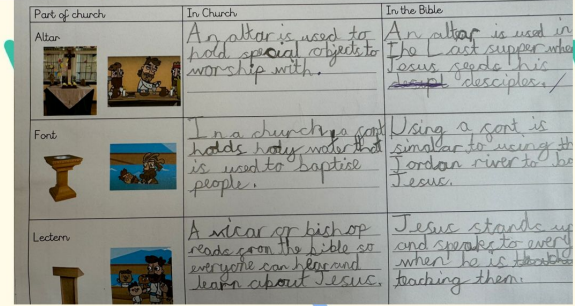 Part of church
In Church
In the Bible
Altar
An altar is used to
hold special objects to
worship with.
An altar is used in
the Last supper whe
Jesus feeds his
desciples.
Font
In a church, a font
holds holy water that
is used to baptise
people.
Using a font is
similar to using th
Jordan river to ba
Jesus.
Lectern
A vicar or bishop
reads from the bible so
everyone can hear and
learn about Jesus.
Jesus stands up
and speaks to every
when he is
teaching them.